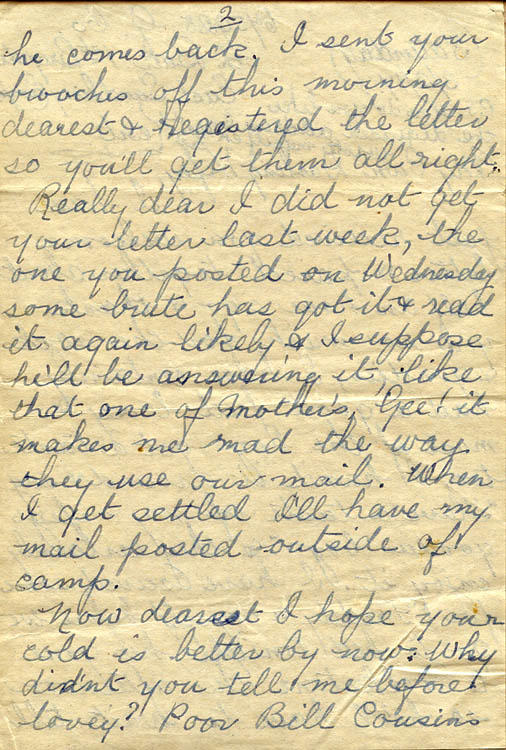 2
he comes back. I sent your
brooches off this morning
dearest & Registered the letter
so you'll get them all right.
Really dear I did not get
your letter last week, the
one you posted on Wednesday
some brute has got it & read
it again likely & I suppose
he'll be answering it, like
that one of Mother's, Gee! it
makes me mad the way
they use our mail. When
I get settled I'll have my
mail posted outside of
camp.
Now dearest I hope your
cold is better by now. Why
didn't you tell me before
lovey? Poor Bill Cousins